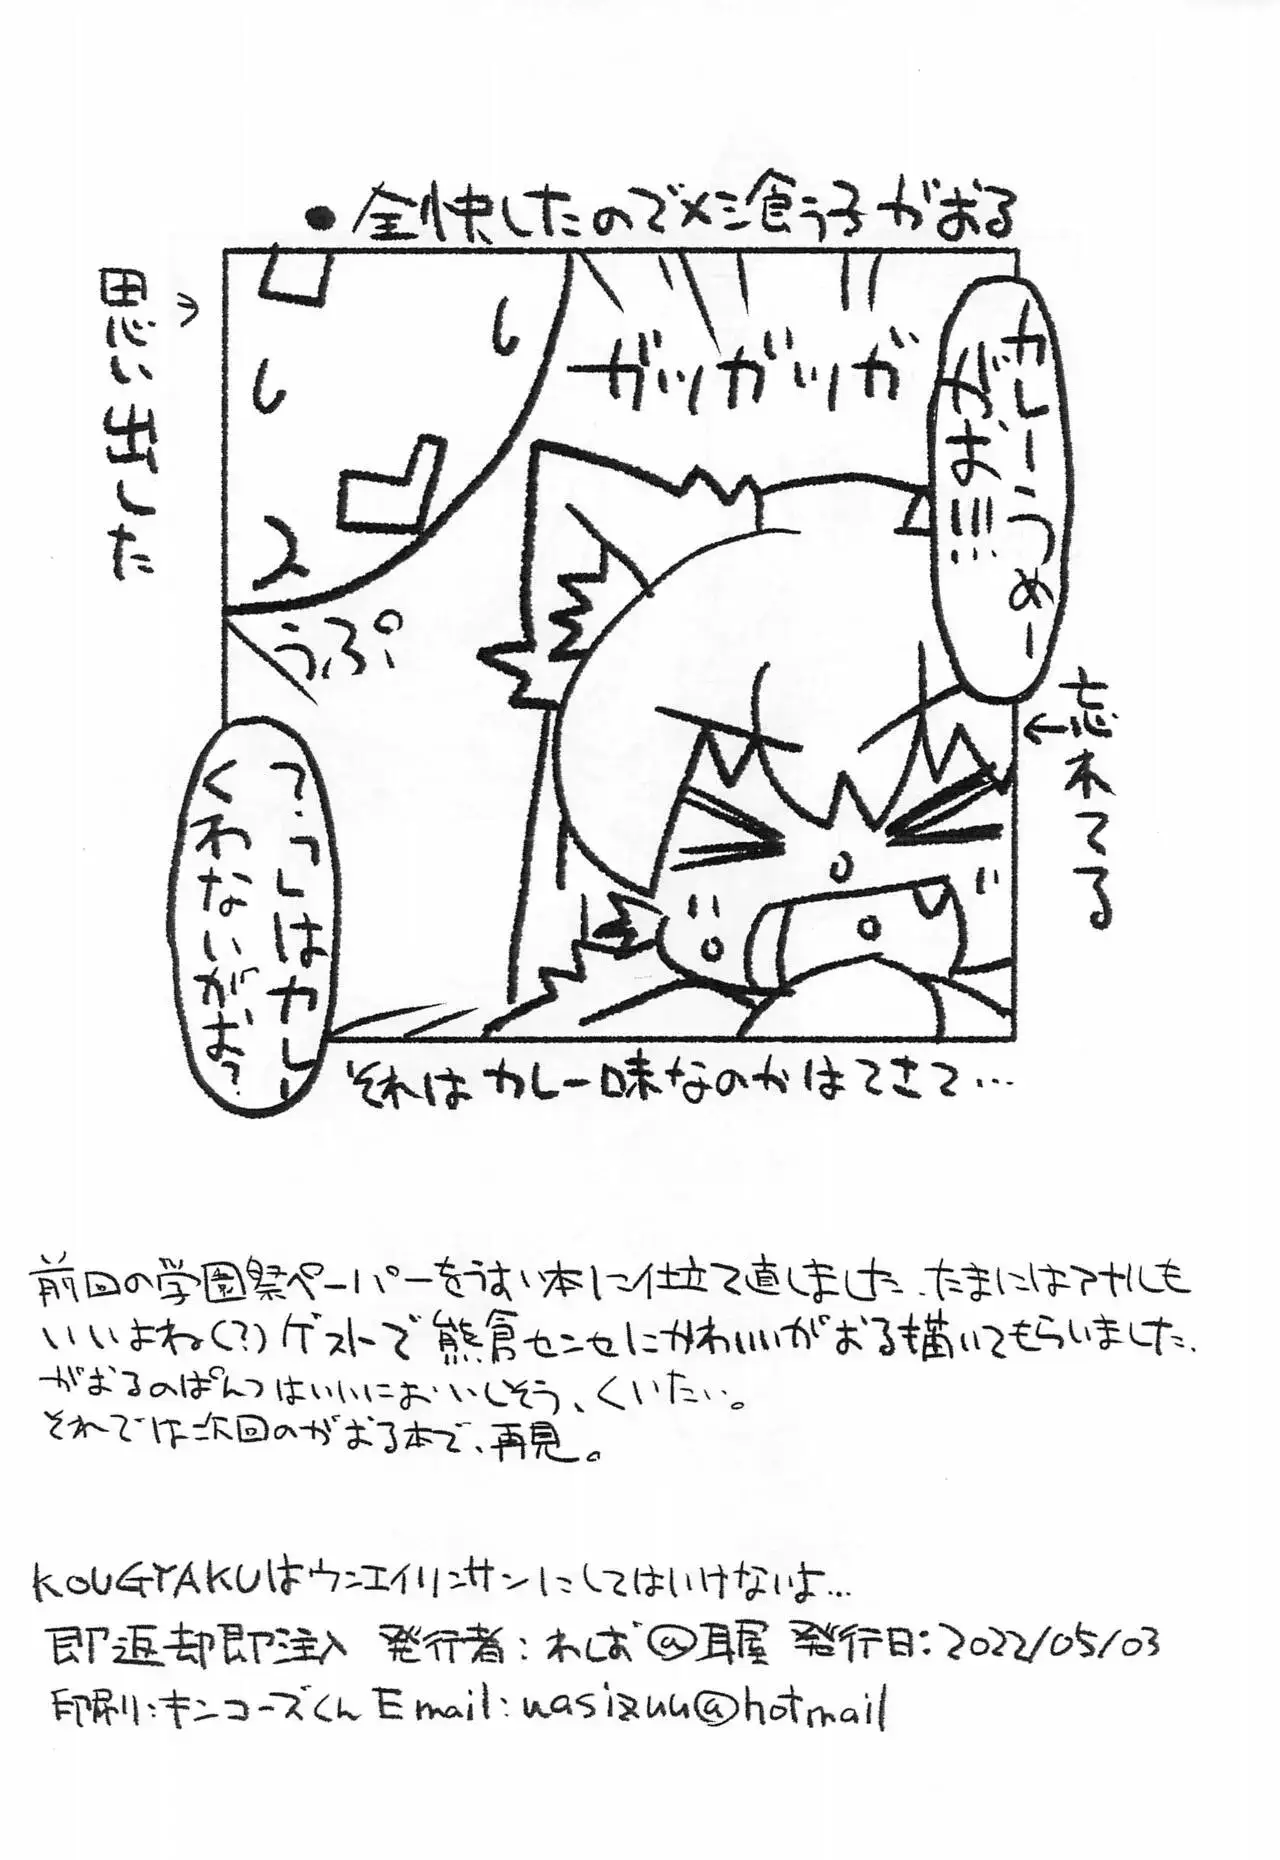 ●全快したのでメシ食う子がおる
カレーうめー
がお!!!
ガツガツガ
思い出した
うぷ
忘れてる
くわないがお?
それはカレー味なのかはてさて…
前回の学園祭ペーパーをうすい本に仕立て直しました、たまにはアナルも
いいよね(?)ゲストで熊倉センセにかわいいがおる描いてもらいました、
がおるのぱんつはいいにおいしそう、くいたい。
それでは次回のがおる本で、再見。
KOUGYAKUはウンエイリンサンにしてはいけないよ…
即返却即注入 発行者:わしお@耳屋 発行日:2022/05/03
印刷:キンコーズくん Email:uasizuu@hotmail